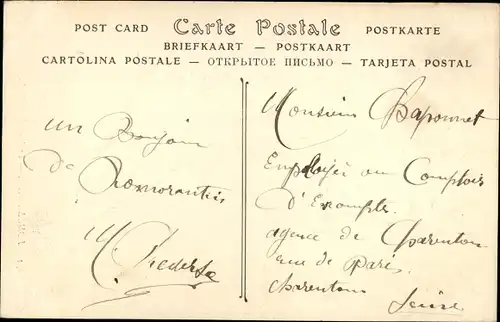 POST CARD Carte Postale POSTKARTE
BRIEFKAART — POSTKAART
CARTOLINA POSTALE — ОТКРЫТОЕ ПИСЬМО — TARJETA POSTAL
un Bonjour
de
Romorantin
Monsieur Baponnet
Employé au Comptoir
d'Escompte
agence de Charenton
rue de Paris
Charenton
Seine